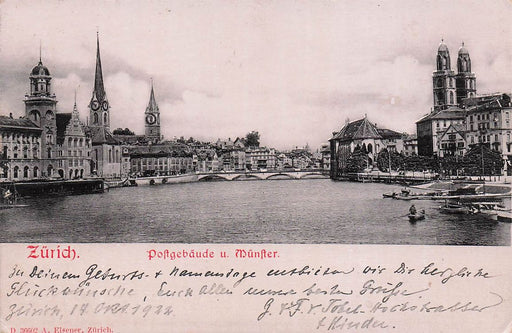 Zürich.
Postgebäude u. Münster.
zu Deinem Geburts- + Namenstage entbieten wir Dir herzliche
Glückwünsche, Euch allen unsere besten Grüße
Zürich, 19 Okt. 1922
+ Kinder.
D 36602 A. Eisener, Zürich.